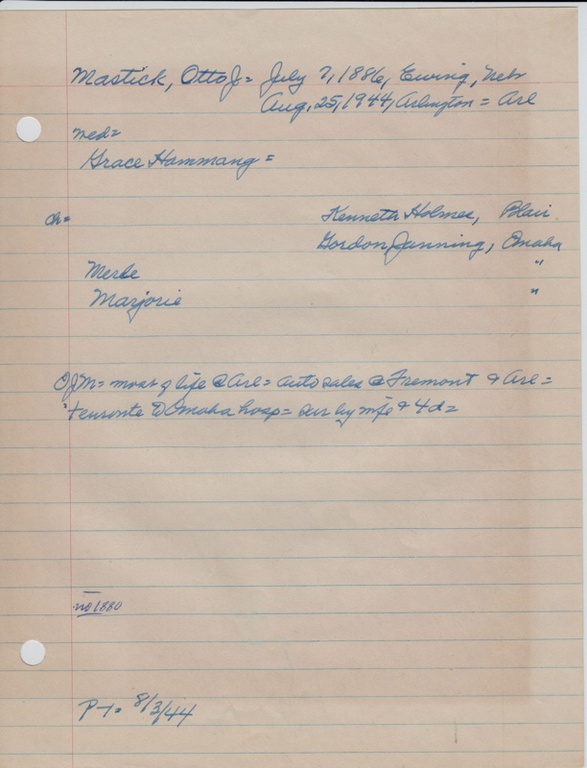 Mastick, Otto J = July 7, 1886, Ewing, Nebr
Aug, 25, 1944, Arlington = Arl
med=
Grace Hammang =
ch = Kenneth Holmes, Blair
Gordon Janning, Omaha
Merle "
Marjorie "
OJM = most of life @ Arl = auto sales @ Fremont & Arl =
to Omaha hosp = sur by wife & 4d =
no 1880
P-T= 8/3/44